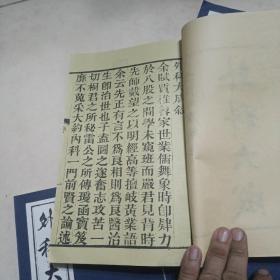 外科大成敘
余賦質鈍魯家世業儒舞象時即肆力
於八股之間學未窺班而嚴君見背時
先師戴望之以明經高等擅岐黃業語
余云先正有言不爲良相則爲良醫治
生即治世也子盍圖之遂奮志攻苦一
切桐君之所秘雷公之所傳瓊函寶笈
靡不蒐采大約內科一門前賢之論述
外科大